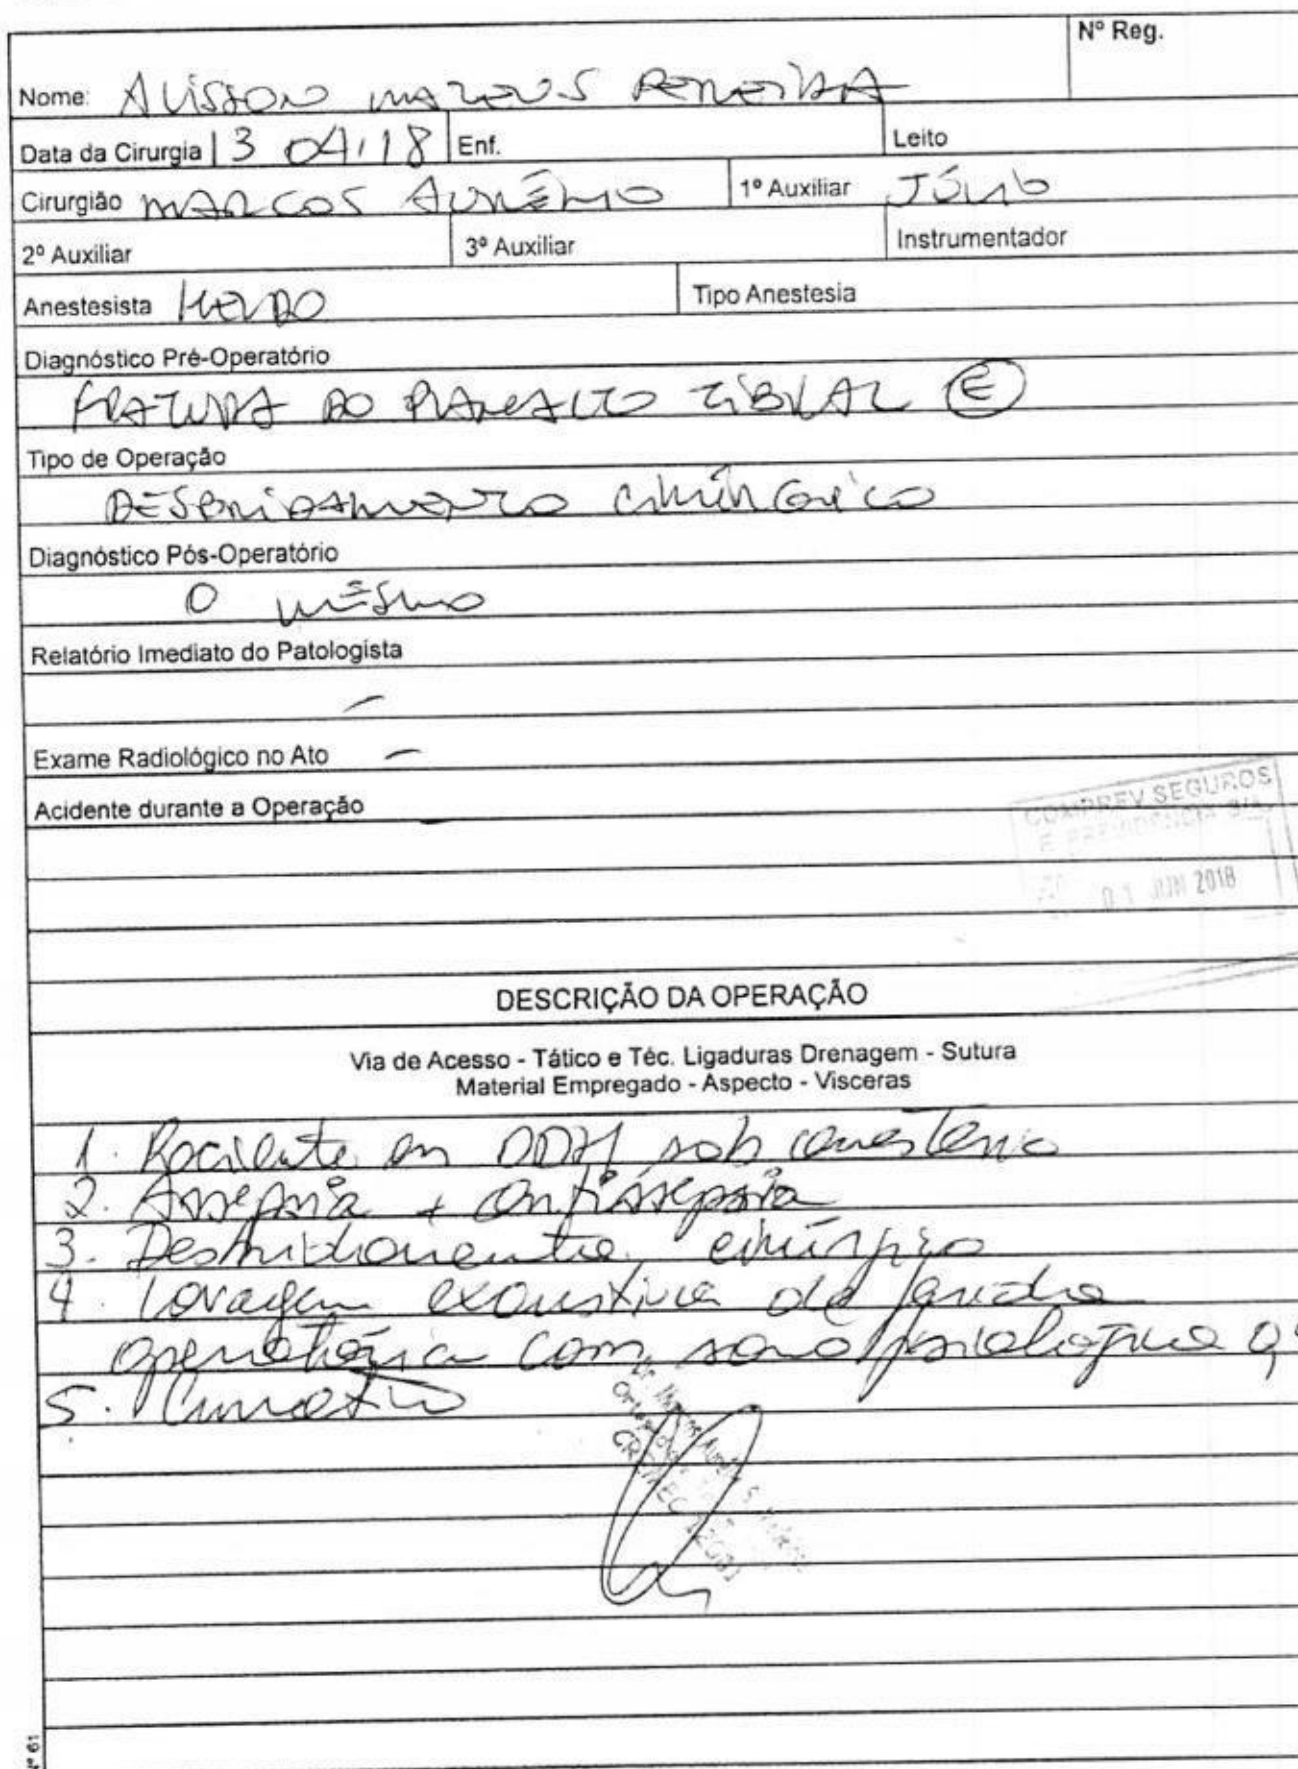 Nº Reg.
Nome: ALISSON MATEUS PEREIRA
Data da Cirurgia 13 04/18 Enf. Leito
Cirurgião MARCOS AURÉLIO 1º Auxiliar JÚLIO
2º Auxiliar 3º Auxiliar Instrumentador
Anestesista Tipo Anestesia
Diagnóstico Pré-Operatório
FRATURA DO PLANALTO TIBIAL E
Tipo de Operação
DESBRIDAMENTO CIRÚRGICO
Diagnóstico Pós-Operatório
O MESMO
Relatório Imediato do Patologista
-
Exame Radiológico no Ato -
Acidente durante a Operação -
COMPREV SEGUROS
E PREVIDENCIA S/A
01 JUN 2018
DESCRIÇÃO DA OPERAÇÃO
Via de Acesso - Tático e Téc. Ligaduras Drenagem - Sutura
Material Empregado - Aspecto - Visceras
1. Paciente em DDH sob anestesia
2. Assepsia + antissepsia
3. Desbridamento cirúrgico
4. Lavagem exaustiva da ferida
operatória com soro fisiológico 0,9
5. Curativo
Dr. Marcos Aurélio S.
CREMEC
Nº 61